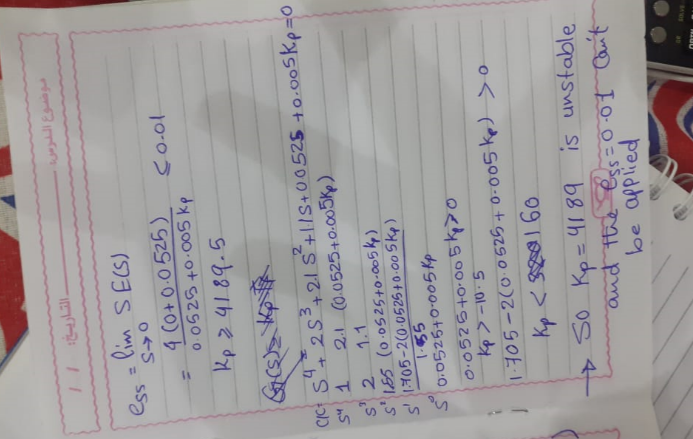 موضوع الدرس:
التاريخ: / /
ess = lim SE(S)
S→0
= 4(0+0.0525) / 0.0525+0.005Kp ≤ 0.01
Kp ≥ 4189.5
C/C= S⁴+2S³+2.1S²+1.1S+0.0525+0.005Kp=0
S⁴ 1 2.1 (0.0525+0.005Kp)
S³ 2 1.1
S² 1.55 (0.0525+0.005Kp)
S¹ 1.705-2(0.0525+0.005Kp) / 1.55
S⁰ 0.0525+0.005Kp
0.0525+0.005Kp>0
Kp>-10.5
1.705-2(0.0525+0.005Kp) > 0
Kp < 160
→ So Kp=4189 is unstable
and the ess=0.01 can't
be applied